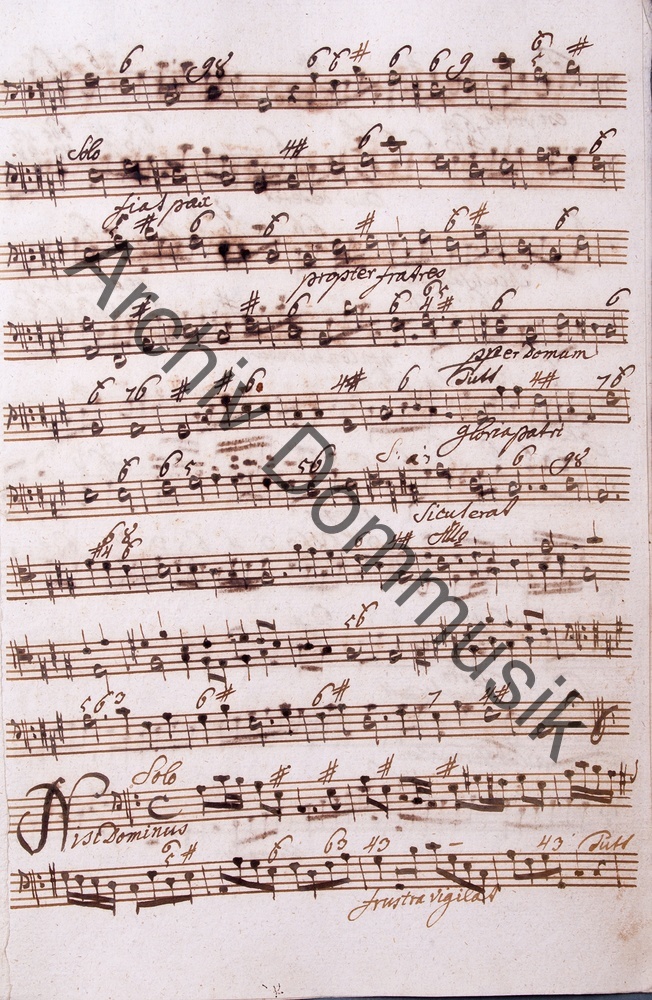 6 98 6 6 # 6 6 9 6 5 #
Solo 4# 6 6
fiat pax
# 6 6 # 6 # 6
propter fratres
# # 6 6 6 5 4 # 6 6
pter Domum
6 76 # # 6. 4# 6 Tutt 4# 76
gloria patri
6 6 5 56 6 98
Sicut erat
6 8 # 4 6 6 4# Allo
56
563 6# 6# 7 4#
Solo # # # #
Nisi Dominus
6 5 # 6 63 43 – 43 Tutt
frustra vigilat
Archiv Dommusik